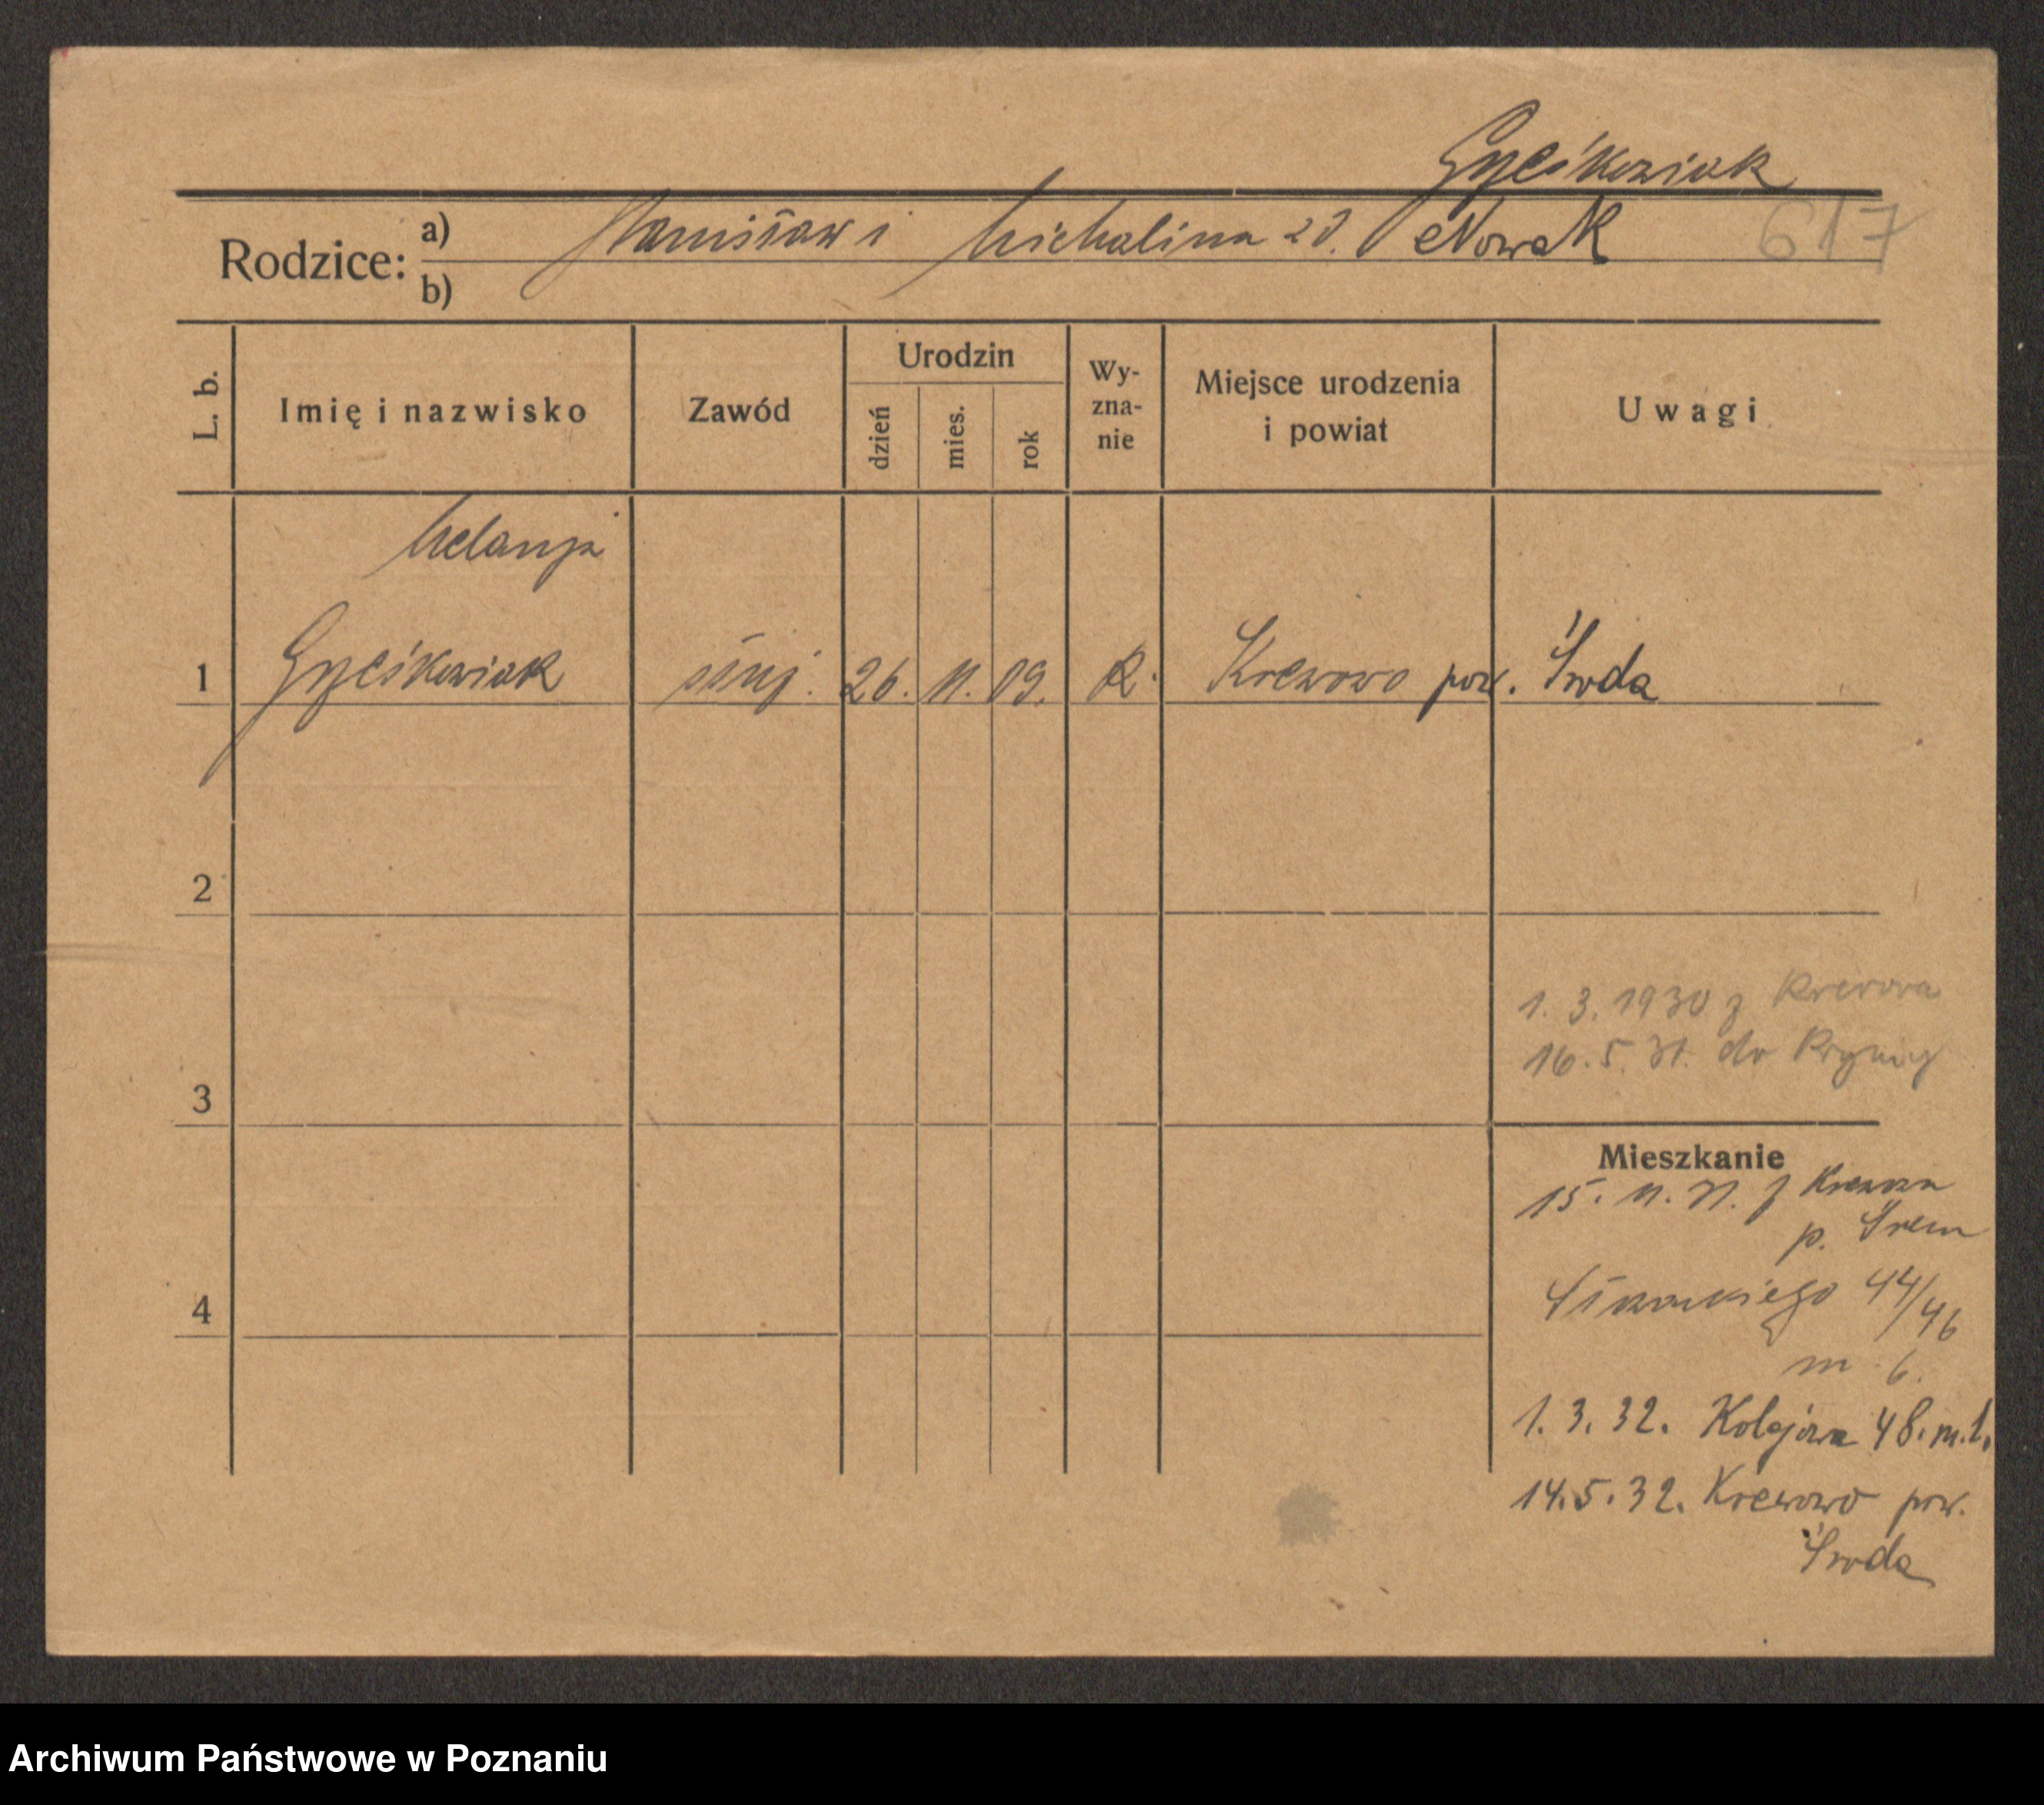 Gyśkowiak
Rodzice: a) Stanisław i Michalina zd. Nowak 617
b)
L. b.
Imię i nazwisko
Zawód
Urodzin
dzień
mies.
rok
Wy-
zna-
nie
Miejsce urodzenia
i powiat
Uwagi
Melanja
1 Gyśkowiak służ. 26. 11. 09. R. Krerowo pow. Środa
2
1. 3. 1930 z Krerowa
16. 5. 31. do
3
Mieszkanie
15. 11. 31. z Krerowa
p. Śrem
4
Słowackiego 44/46
m 6.
1. 3. 32. Kolejowa 48. m. 1.
14. 5. 32. Krerowo pow.
Środa
Archiwum Państwowe w Poznaniu